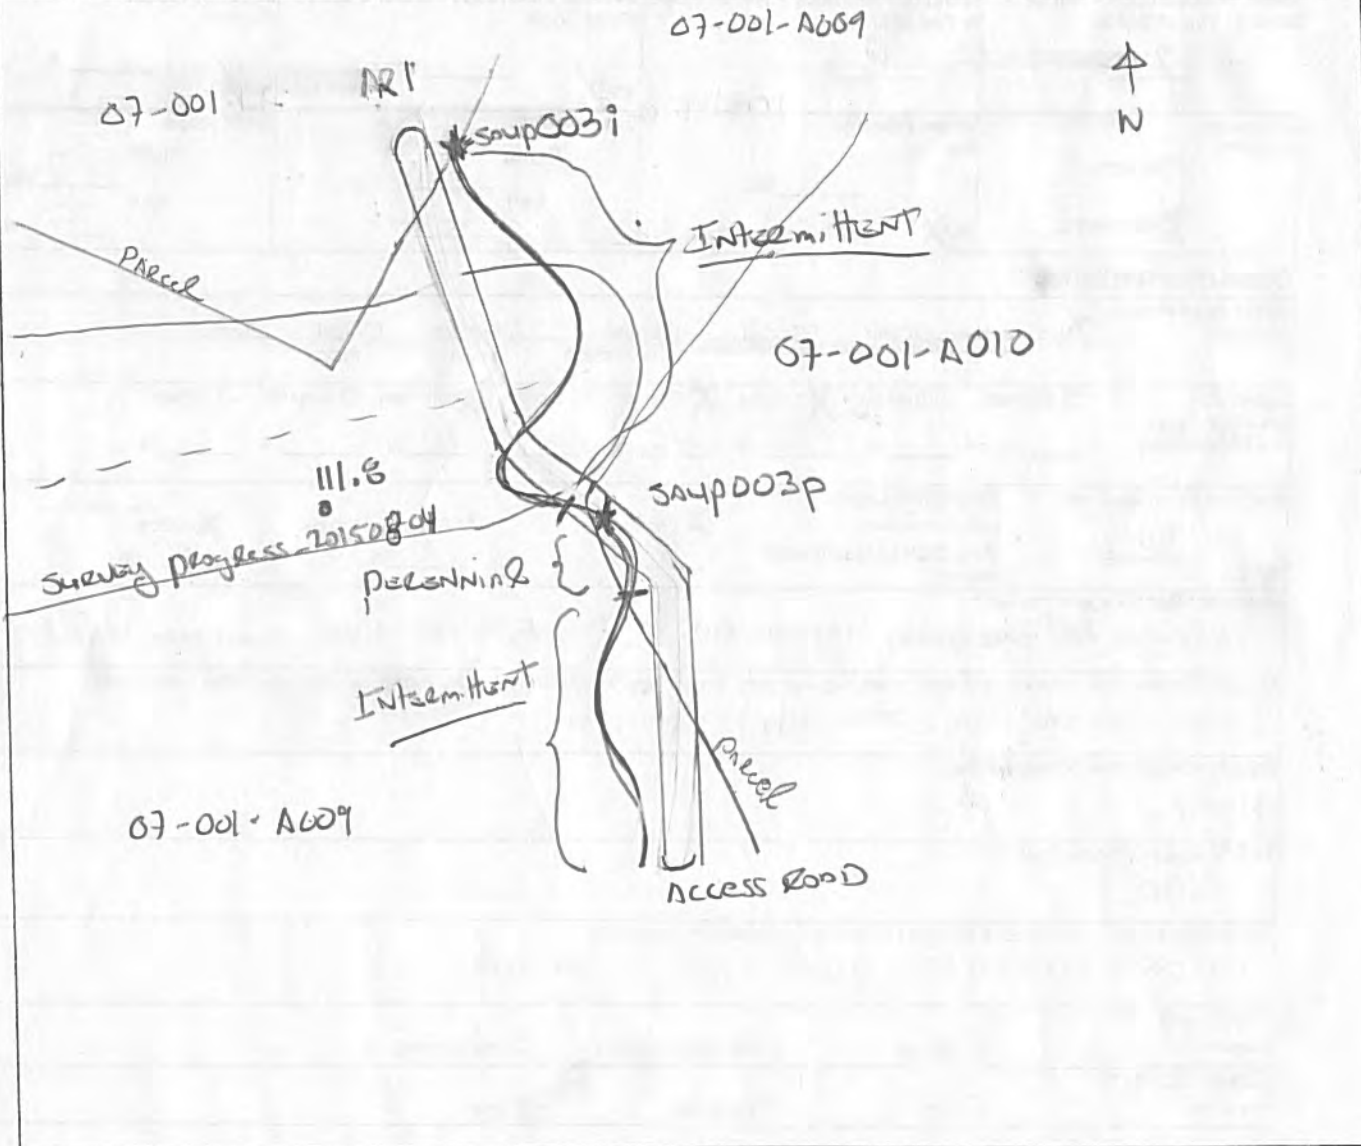 07-001-A009
07-001
N
Intermittent
Parcel
07-001-A010
111.8
Survey progress_20150804
Perennial
Intermittent
Parcel
07-001-A009
Access Road